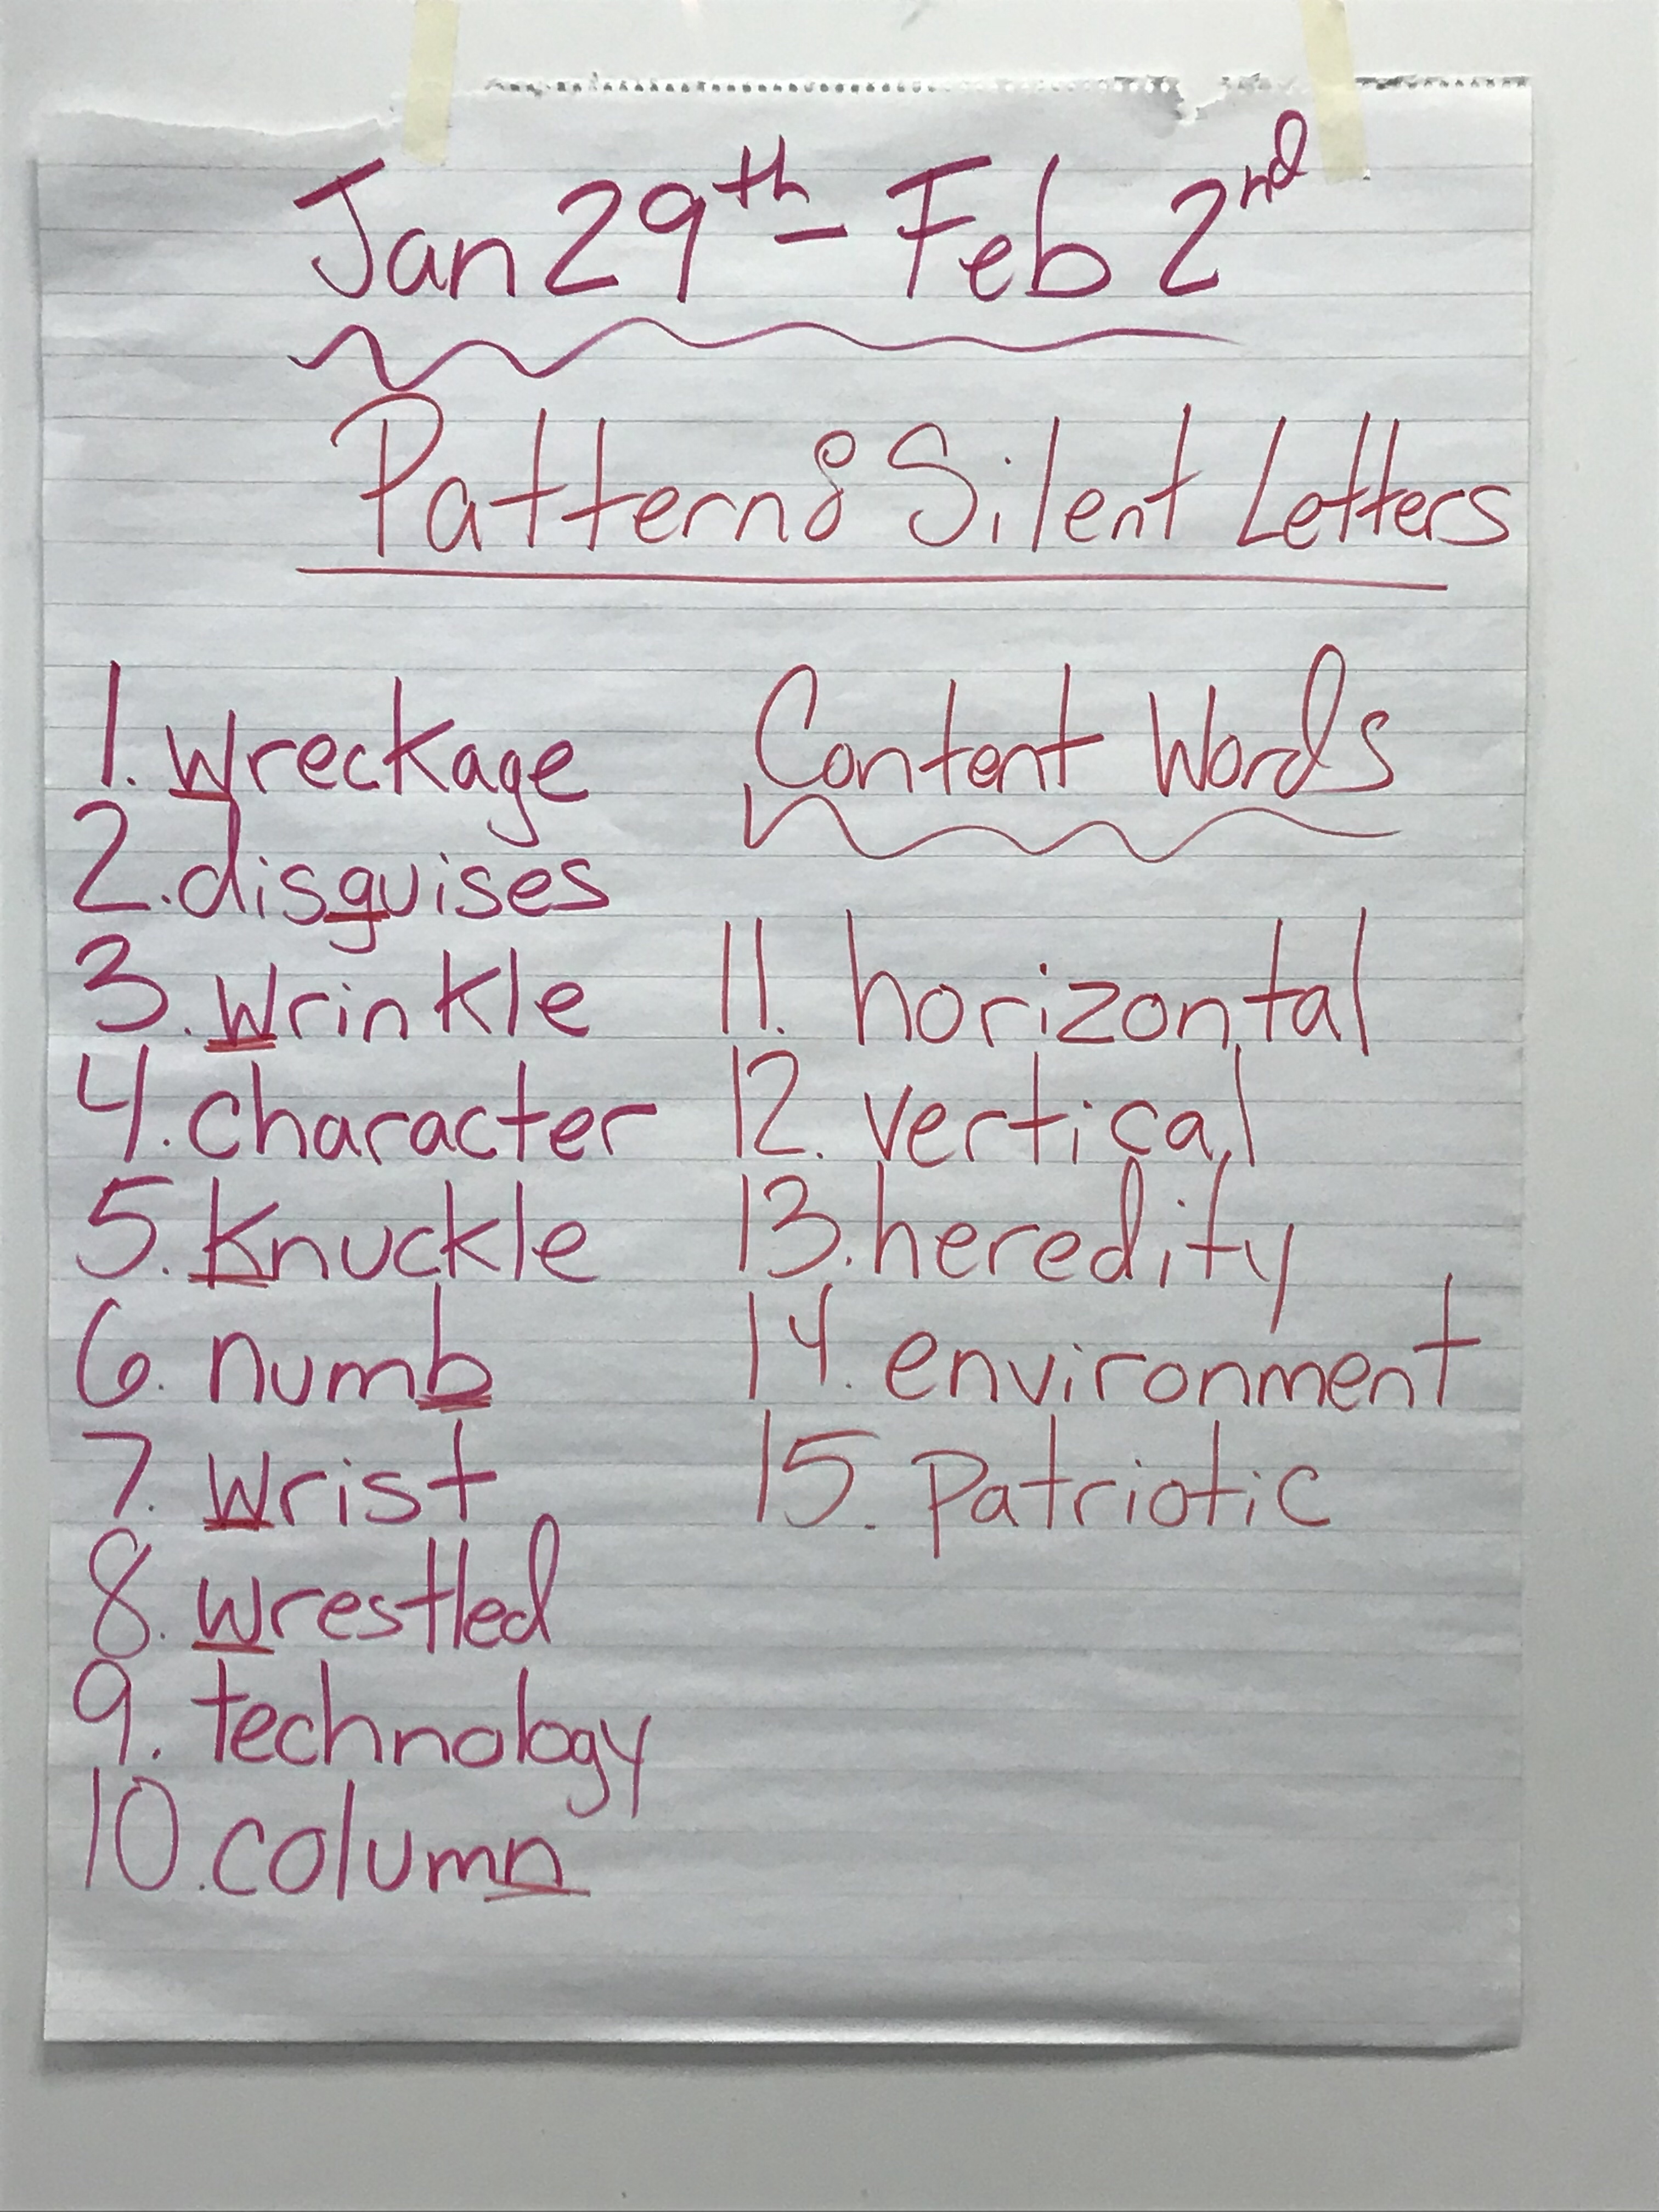 Jan 29th - Feb 2nd
Pattern: Silent Letters
1. wreckage
2. disguises
3. wrinkle
4. character
5. knuckle
6. numb
7. wrist
8. wrestled
9. technology
10. column
Content Words
11. horizontal
12. vertical
13. heredity
14. environment
15. patriotic